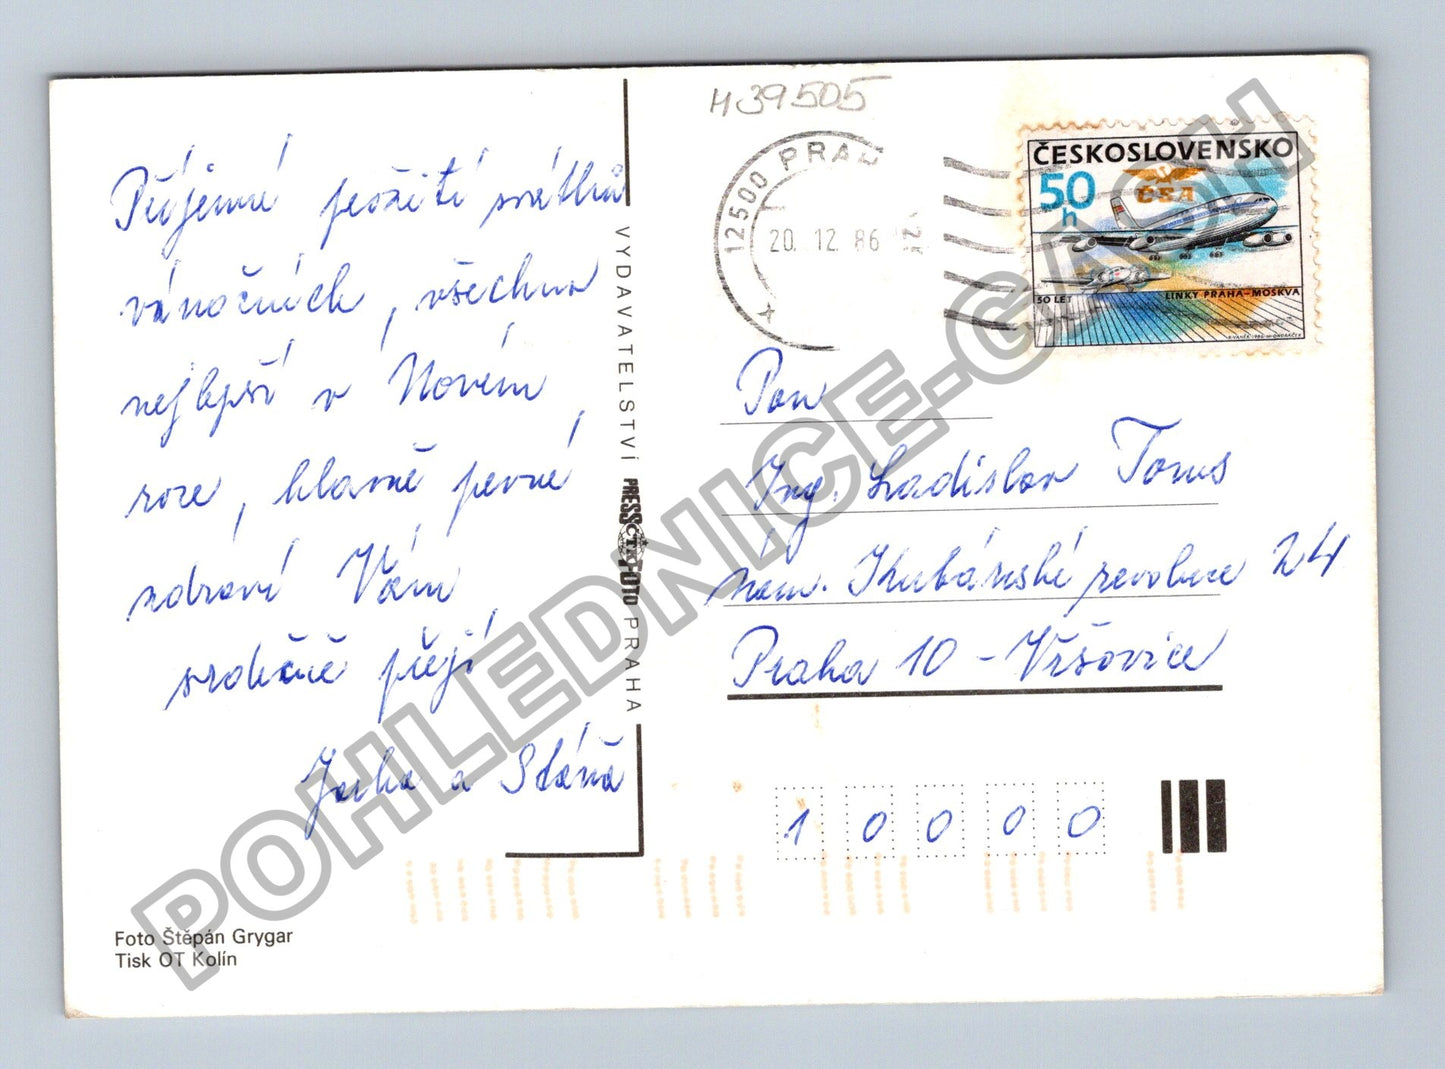 Příjemné prožití svátků
vánočních, všechno
nejlepší v Novém
roce, hlavně pevné
zdraví Vám
srdečně přejí
Jarka a Stáňa
Foto Štěpán Grygar
Tisk OT Kolín
VYDAVATELSTVÍ PRESSFOTO PRAHA
ČTK
H39505
12500 PRAH
20. 12. 86
4
ČESKOSLOVENSKO
50 h
ČSA
50 LET LINKY PRAHA-MOSKVA
Pan
Ing. Ladislav Toms
nám. Kubánské revoluce 24
Praha 10 - Vršovice
1 0 0 0 0
POHLEDNICE-CASH